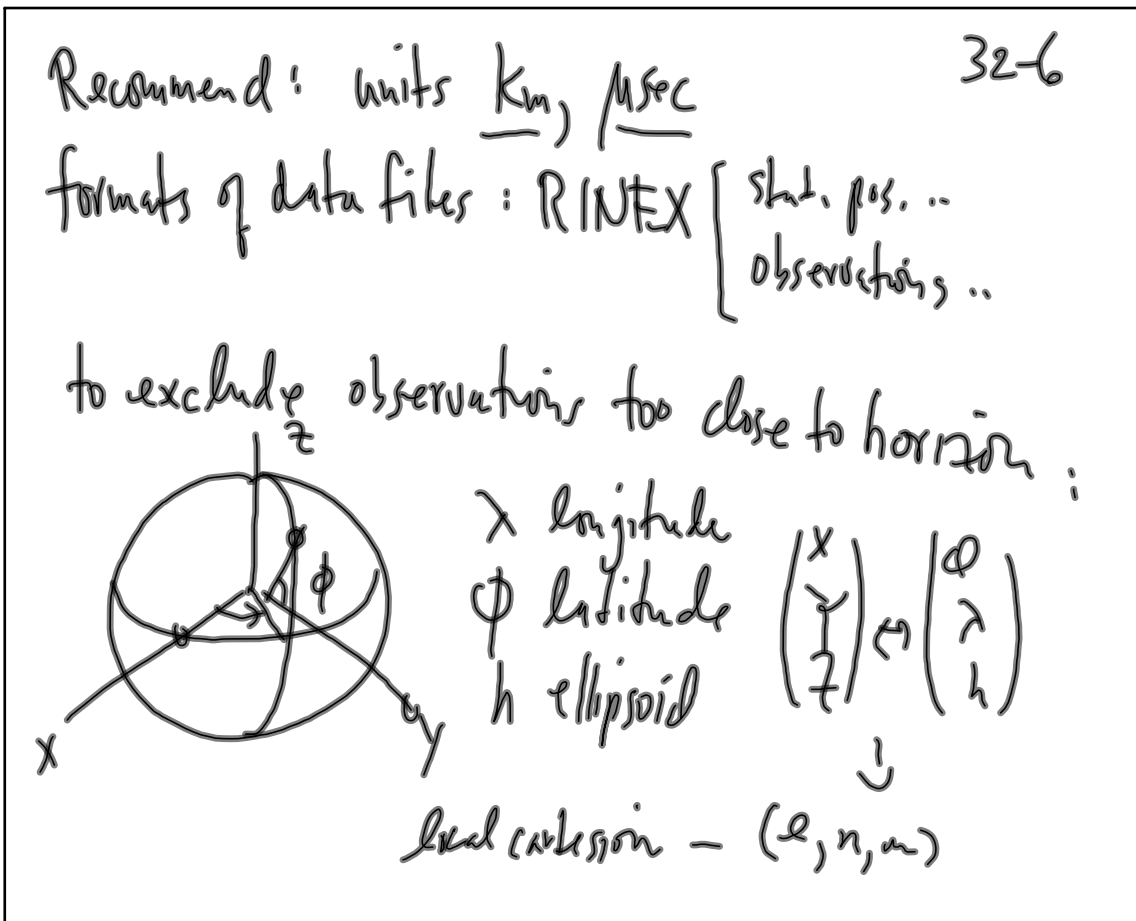 32-6
Recommend: units km, μsec
formats of data files: RINEX [ stat. pos. ..
observations ..
to exclude observations too close to horizon:
z
λ longitude
φ latitude
h ellipsoid
(X Y Z) ↔ (φ λ h)
φ
λ
X
Y
↓
local cartesian - (e, n, u)